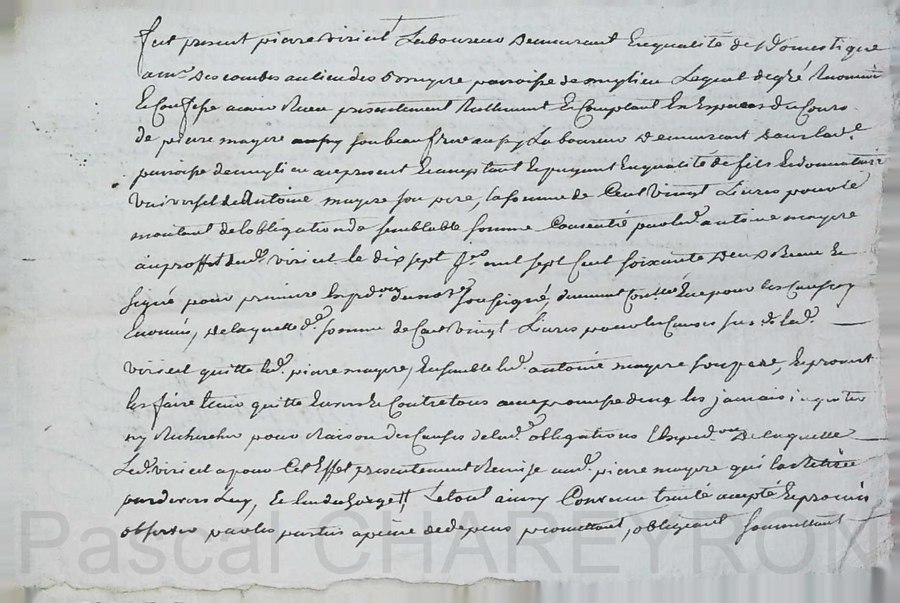 fut present pierre virieit Laboureur demeurant En qualité de domestique
a mr descombes au lieu des mayere parroisse de mylieu Lequel de gré
Et Confesse avoir Receu presentement Reellement Et Comptant En Espeaces du Cours
de pierre mayere son beau frere aussy Laboureur Demeurant dans lad.e
parroisse de mylieu present Et acceptant Et payant En qualité de fils Et donnataire
Universel de Antoine mayere son pere, la somme de Cent Vingt Livres pour le
montant de lobligation de semblable somme Consentie par led. antoine mayere
au proffit dud. virieit le dix sept mil sept Cent soixante Deux Receue Et
signé pour primeure Exped.on du no.re soussigné, dument Con.llée pour les Causes y
Enoncées, de laquelle d.e somme de Cent Vingt Livres pour les Causes sus d. led.
virieit quitte led. pierre mayere, Ensemble led. antoine mayere son pere, Et promet
les faire tenir quitte Envers Et Contre tous avec promesse de ne les jamais inquieter
ny Rechercher pour Raison des Causes de lad. obligation Expéd.on De laquelle
Led. viriet a pour Cet Effet presentement Remise aud. pierre mayere qui la Retirée
pardevers Luy, Le tout ainsy Convenu traité accepté Et promis
observer par les parties a peine de depens promettant, obligeant soumettant
Pascal CHAREYRON